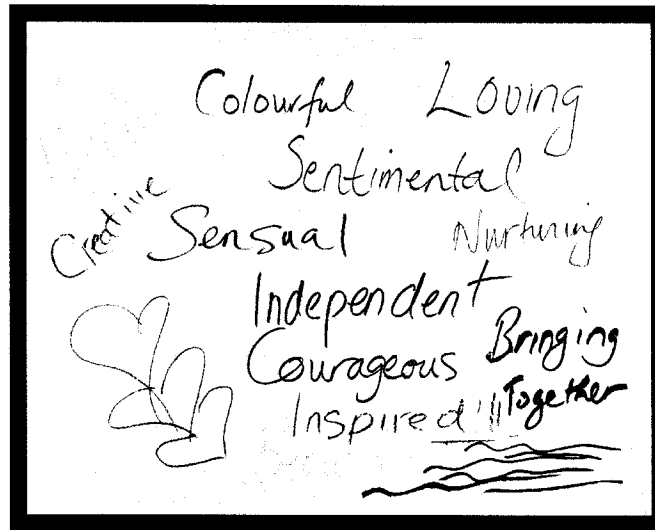 Colourful Loving
Sentimental
Creative
Sensual Nurturing
Independent
Courageous Bringing
Together
Inspired!!!